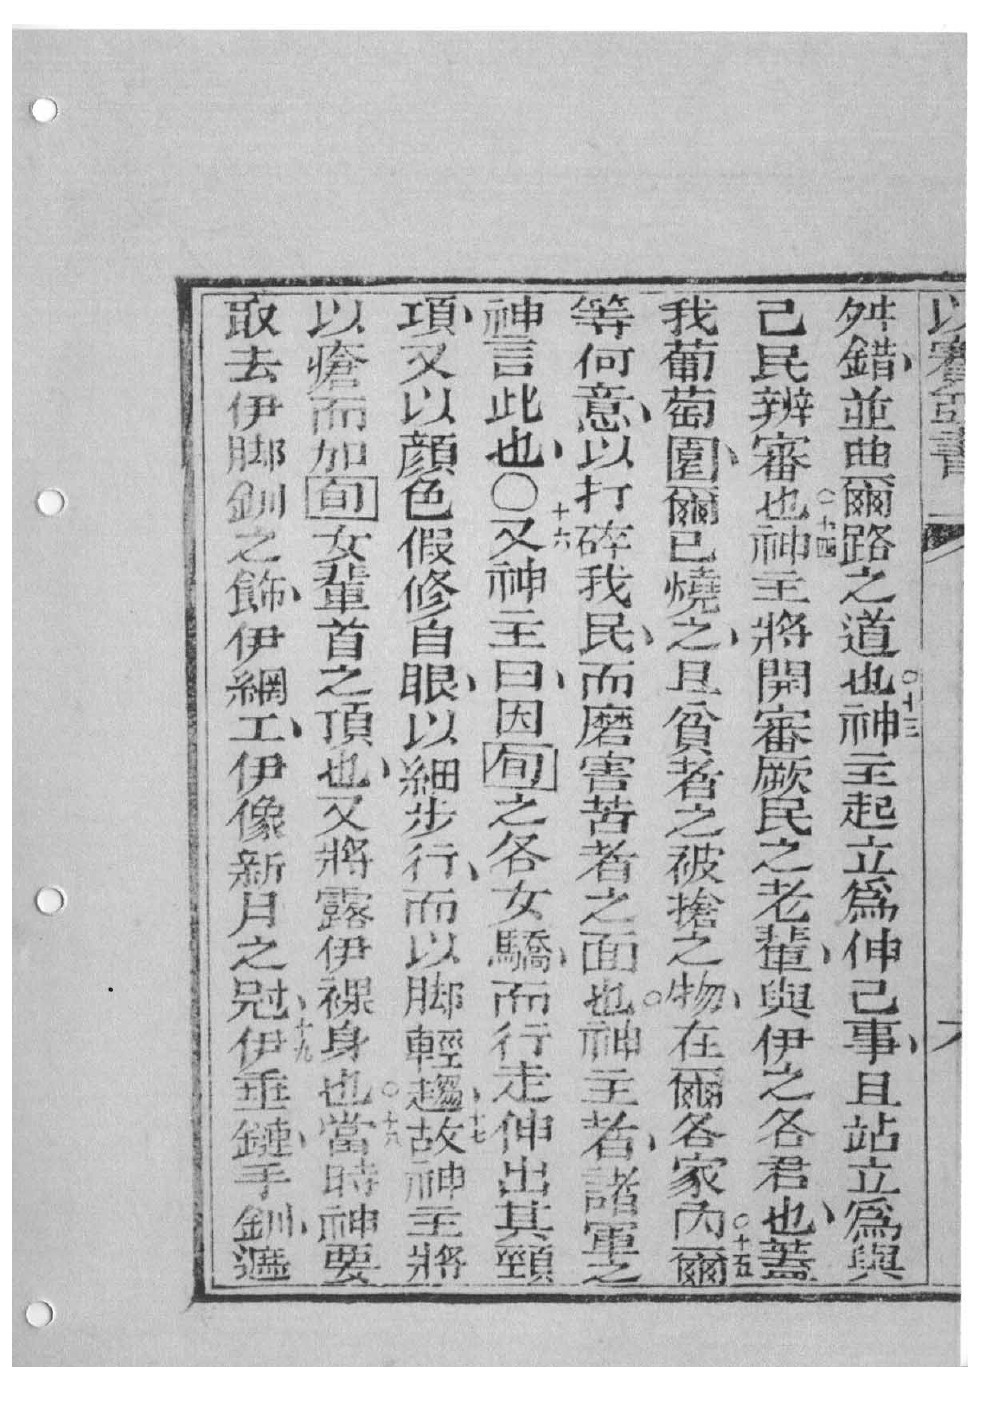 以賽亞書
舛錯、並曲爾路之道也○十三神主起立爲伸己事、且站立爲與
己民辨審也○十四神主將開審厥民之老輩、與伊之各君也、蓋
我葡萄園、爾已燒之、且貧者之被搶之物、在爾各家內○十五爾
等何意、以打碎我民、而磨害苦者之面也○神主者、諸軍之
神言此也、○十六又神主曰、因旬之各女驕、而行走伸出其頸
項、又以顔色假修自眼、以細步行、而以脚輕趨、十七故神主將
以瘡而加旬女輩首之頂也、又將露伊裸身也○十八當時神要
取去伊脚釧之飾、伊網工、伊像新月之冠、十九伊垂鏈、手釧、遮